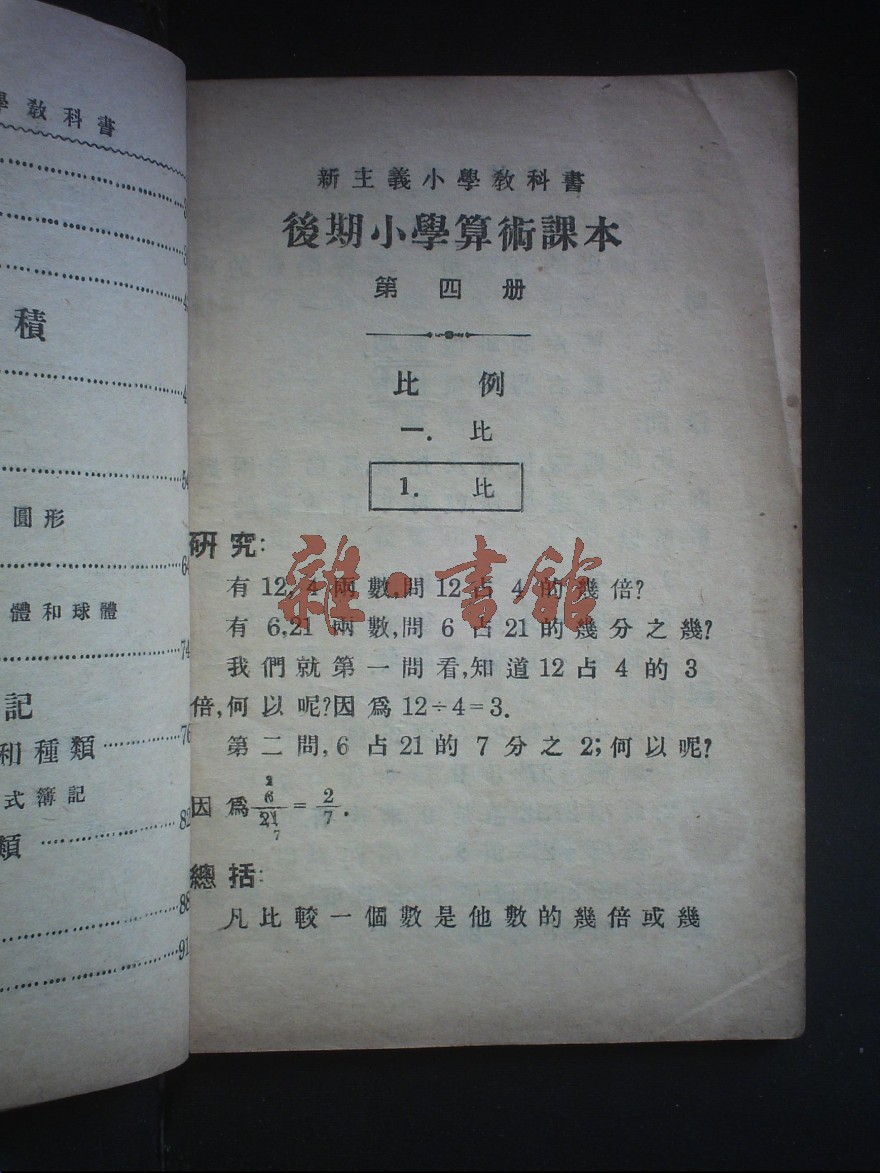 學教科書
3
3
4
積
4
54
圓形
64
體和球體
74
記
和種類 76
式簿記
82
類
88
91
新主義小學教科書
後期小學算術課本
第四册
比例
一. 比
1. 比
研究:
有12,4兩數,問12占4的幾倍?
有6,21兩數,問6占21的幾分之幾?
我們就第一問看,知道12占4的3
倍,何以呢?因爲12÷4=3.
第二問,6占21的7分之2;何以呢?
因爲 6/21 (2/7) = 2/7.
總括:
凡比較一個數是他數的幾倍或幾
雜·書館